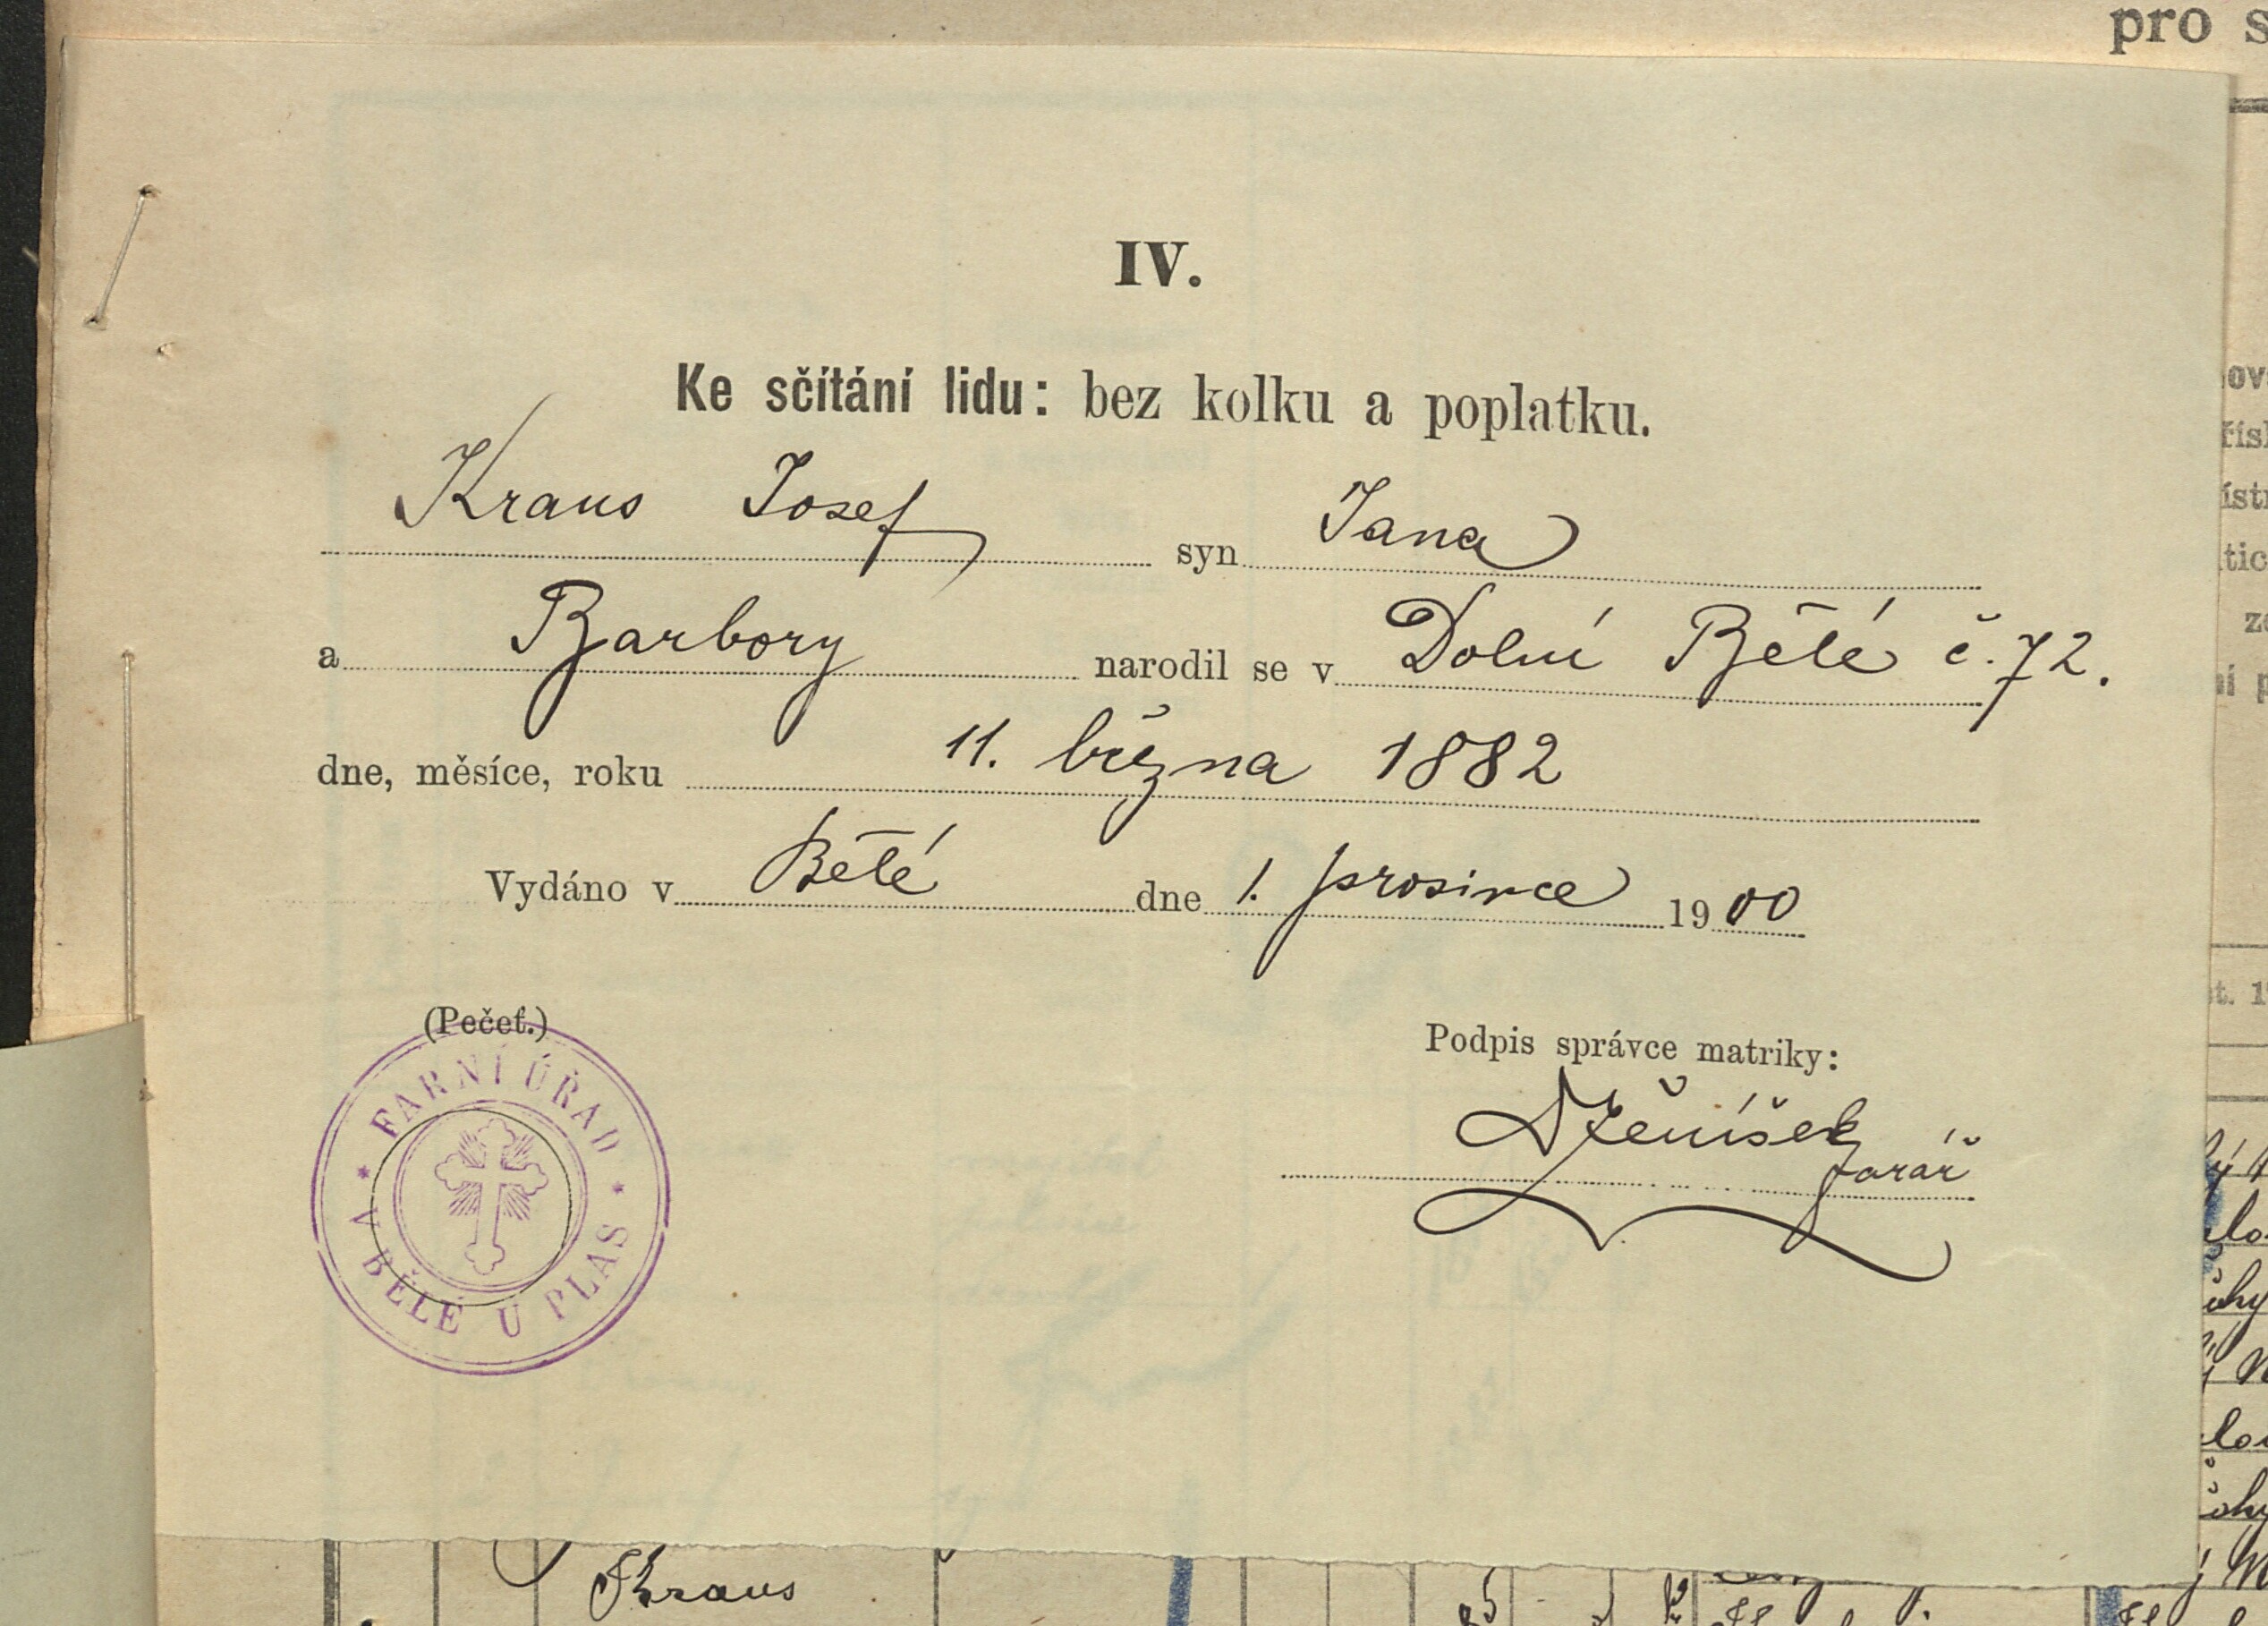 pro s
IV.
Ke sčítání lidu: bez kolku a poplatku.
Kraus Josef syn Jana
a Barbory narodil se v Dolní Bělé č. 72.
dne, měsíce, roku 11. března 1882
Vydáno v Bělé dne 1. prosince 1900
(Pečeť.)
FARNÍ ÚŘAD
BĚLÉ U PLAS
Podpis správce matriky:
farář
Kraus